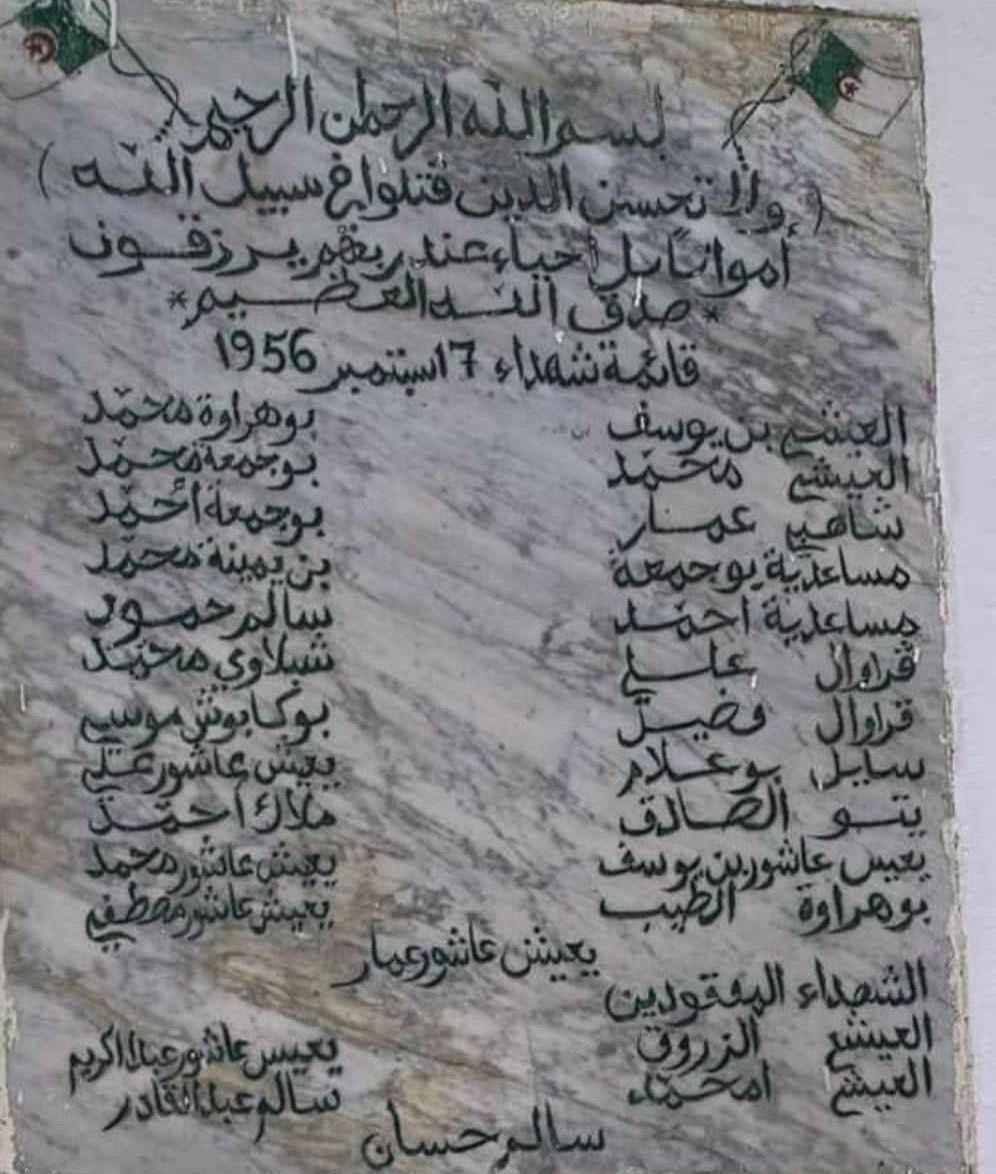 بسم الله الرحمان الرحيم
( ولا تحسبن الذين قتلوا في سبيل الله )
أمواتا بل أحياء عند ربهم يرزقون
* صدق الله العظيم *
قائمة شهداء 17 سبتمبر 1956
العيشي بن يوسف بوهراوة محمد
العيشي محمد بوجمعة محمد
شاهير عمار بوجمعة أحمد
مساعدية بوجمعة بن يمينة محمد
مساعدية احمد سالم حمود
قراوال علي شبلاوي محمد
قراوال فضيل بوكابوش موسى
سايل بوعلام يعيش عاشور علي
يتو الصادق ملاك احمد
يعيش عاشور بن يوسف يعيش عاشور محمد
بوهراوة الطيب يعيش عاشور مصطفى
يعيش عاشور عمار
الشهداء المفقودين
العيشي الزروق يعيش عاشور عبد الكريم
العيشي امحمد سالم عبد القادر
سالم حسان